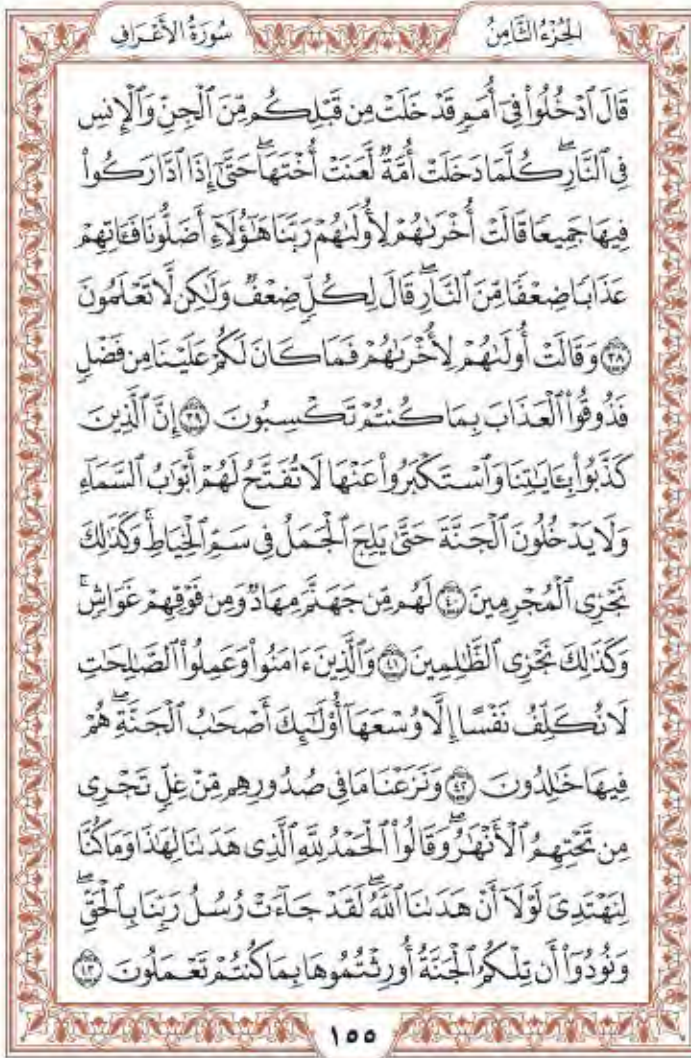 الجُزْءُ الثَّامِنُ
سُورَةُ الأَعْرَافِ
قَالَ ٱدْخُلُوا۟ فِىٓ أُمَمٍ قَدْ خَلَتْ مِن قَبْلِكُم مِّنَ ٱلْجِنِّ وَٱلْإِنسِ
فِى ٱلنَّارِۖ كُلَّمَا دَخَلَتْ أُمَّةٌ لَّعَنَتْ أُخْتَهَاۖ حَتَّىٰٓ إِذَا ٱدَّارَكُوا۟
فِيهَا جَمِيعًا قَالَتْ أُخْرَىٰهُمْ لِأُولَىٰهُمْ رَبَّنَا هَٰٓؤُلَآءِ أَضَلُّونَا فَـَٔاتِهِمْ
عَذَابًا ضِعْفًا مِّنَ ٱلنَّارِۖ قَالَ لِكُلٍّ ضِعْفٌ وَلَٰكِن لَّا تَعْلَمُونَ
٣٨ وَقَالَتْ أُولَىٰهُمْ لِأُخْرَىٰهُمْ فَمَا كَانَ لَكُمْ عَلَيْنَا مِن فَضْلٍ
فَذُوقُوا۟ ٱلْعَذَابَ بِمَا كُنتُمْ تَكْسِبُونَ ٣٩ إِنَّ ٱلَّذِينَ
كَذَّبُوا۟ بِـَٔايَٰتِنَا وَٱسْتَكْبَرُوا۟ عَنْهَا لَا تُفَتَّحُ لَهُمْ أَبْوَٰبُ ٱلسَّمَآءِ
وَلَا يَدْخُلُونَ ٱلْجَنَّةَ حَتَّىٰ يَلِجَ ٱلْجَمَلُ فِى سَمِّ ٱلْخِيَاطِۚ وَكَذَٰلِكَ
نَجْزِى ٱلْمُجْرِمِينَ ٤٠ لَهُم مِّن جَهَنَّمَ مِهَادٌ وَمِن فَوْقِهِمْ غَوَاشٍۚ
وَكَذَٰلِكَ نَجْزِى ٱلظَّٰلِمِينَ ٤١ وَٱلَّذِينَ ءَامَنُوا۟ وَعَمِلُوا۟ ٱلصَّٰلِحَٰتِ
لَا نُكَلِّفُ نَفْسًا إِلَّا وُسْعَهَآ أُو۟لَٰٓئِكَ أَصْحَٰبُ ٱلْجَنَّةِۖ هُمْ
فِيهَا خَٰلِدُونَ ٤٢ وَنَزَعْنَا مَا فِى صُدُورِهِم مِّنْ غِلٍّ تَجْرِى
مِن تَحْتِهِمُ ٱلْأَنْهَٰرُۖ وَقَالُوا۟ ٱلْحَمْدُ لِلَّهِ ٱلَّذِى هَدَىٰنَا لِهَٰذَا وَمَا كُنَّا
لِنَهْتَدِىَ لَوْلَآ أَنْ هَدَىٰنَا ٱللَّهُۖ لَقَدْ جَآءَتْ رُسُلُ رَبِّنَا بِٱلْحَقِّۖ
وَنُودُوٓا۟ أَن تِلْكُمُ ٱلْجَنَّةُ أُورِثْتُمُوهَا بِمَا كُنتُمْ تَعْمَلُونَ ٤٣
١٥٥